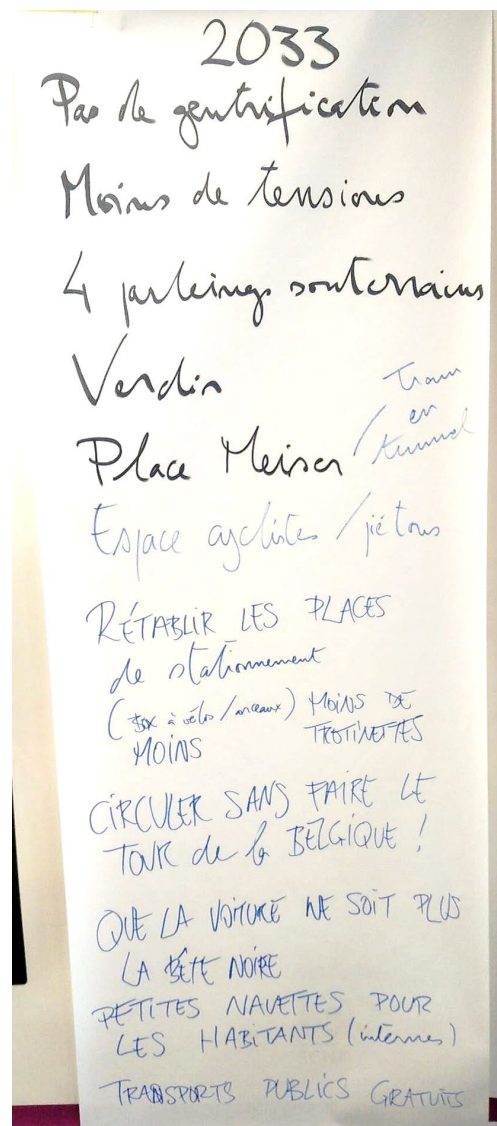 2033
Pas de gentrification
Moins de tensions
4 parkings souterrains
Verdir
Place Meiser / Tram en tunnel
Espace cyclistes / piétons
RÉTABLIR LES PLACES
de stationnement
(box à vélos / arceaux) MOINS DE
MOINS TROTINETTES
CIRCULER SANS FAIRE LE
TOUR de la BELGIQUE !
QUE LA VOITURE NE SOIT PLUS
LA BÊTE NOIRE
PETITES NAVETTES POUR
LES HABITANTS (internes)
TRANSPORTS PUBLICS GRATUITS